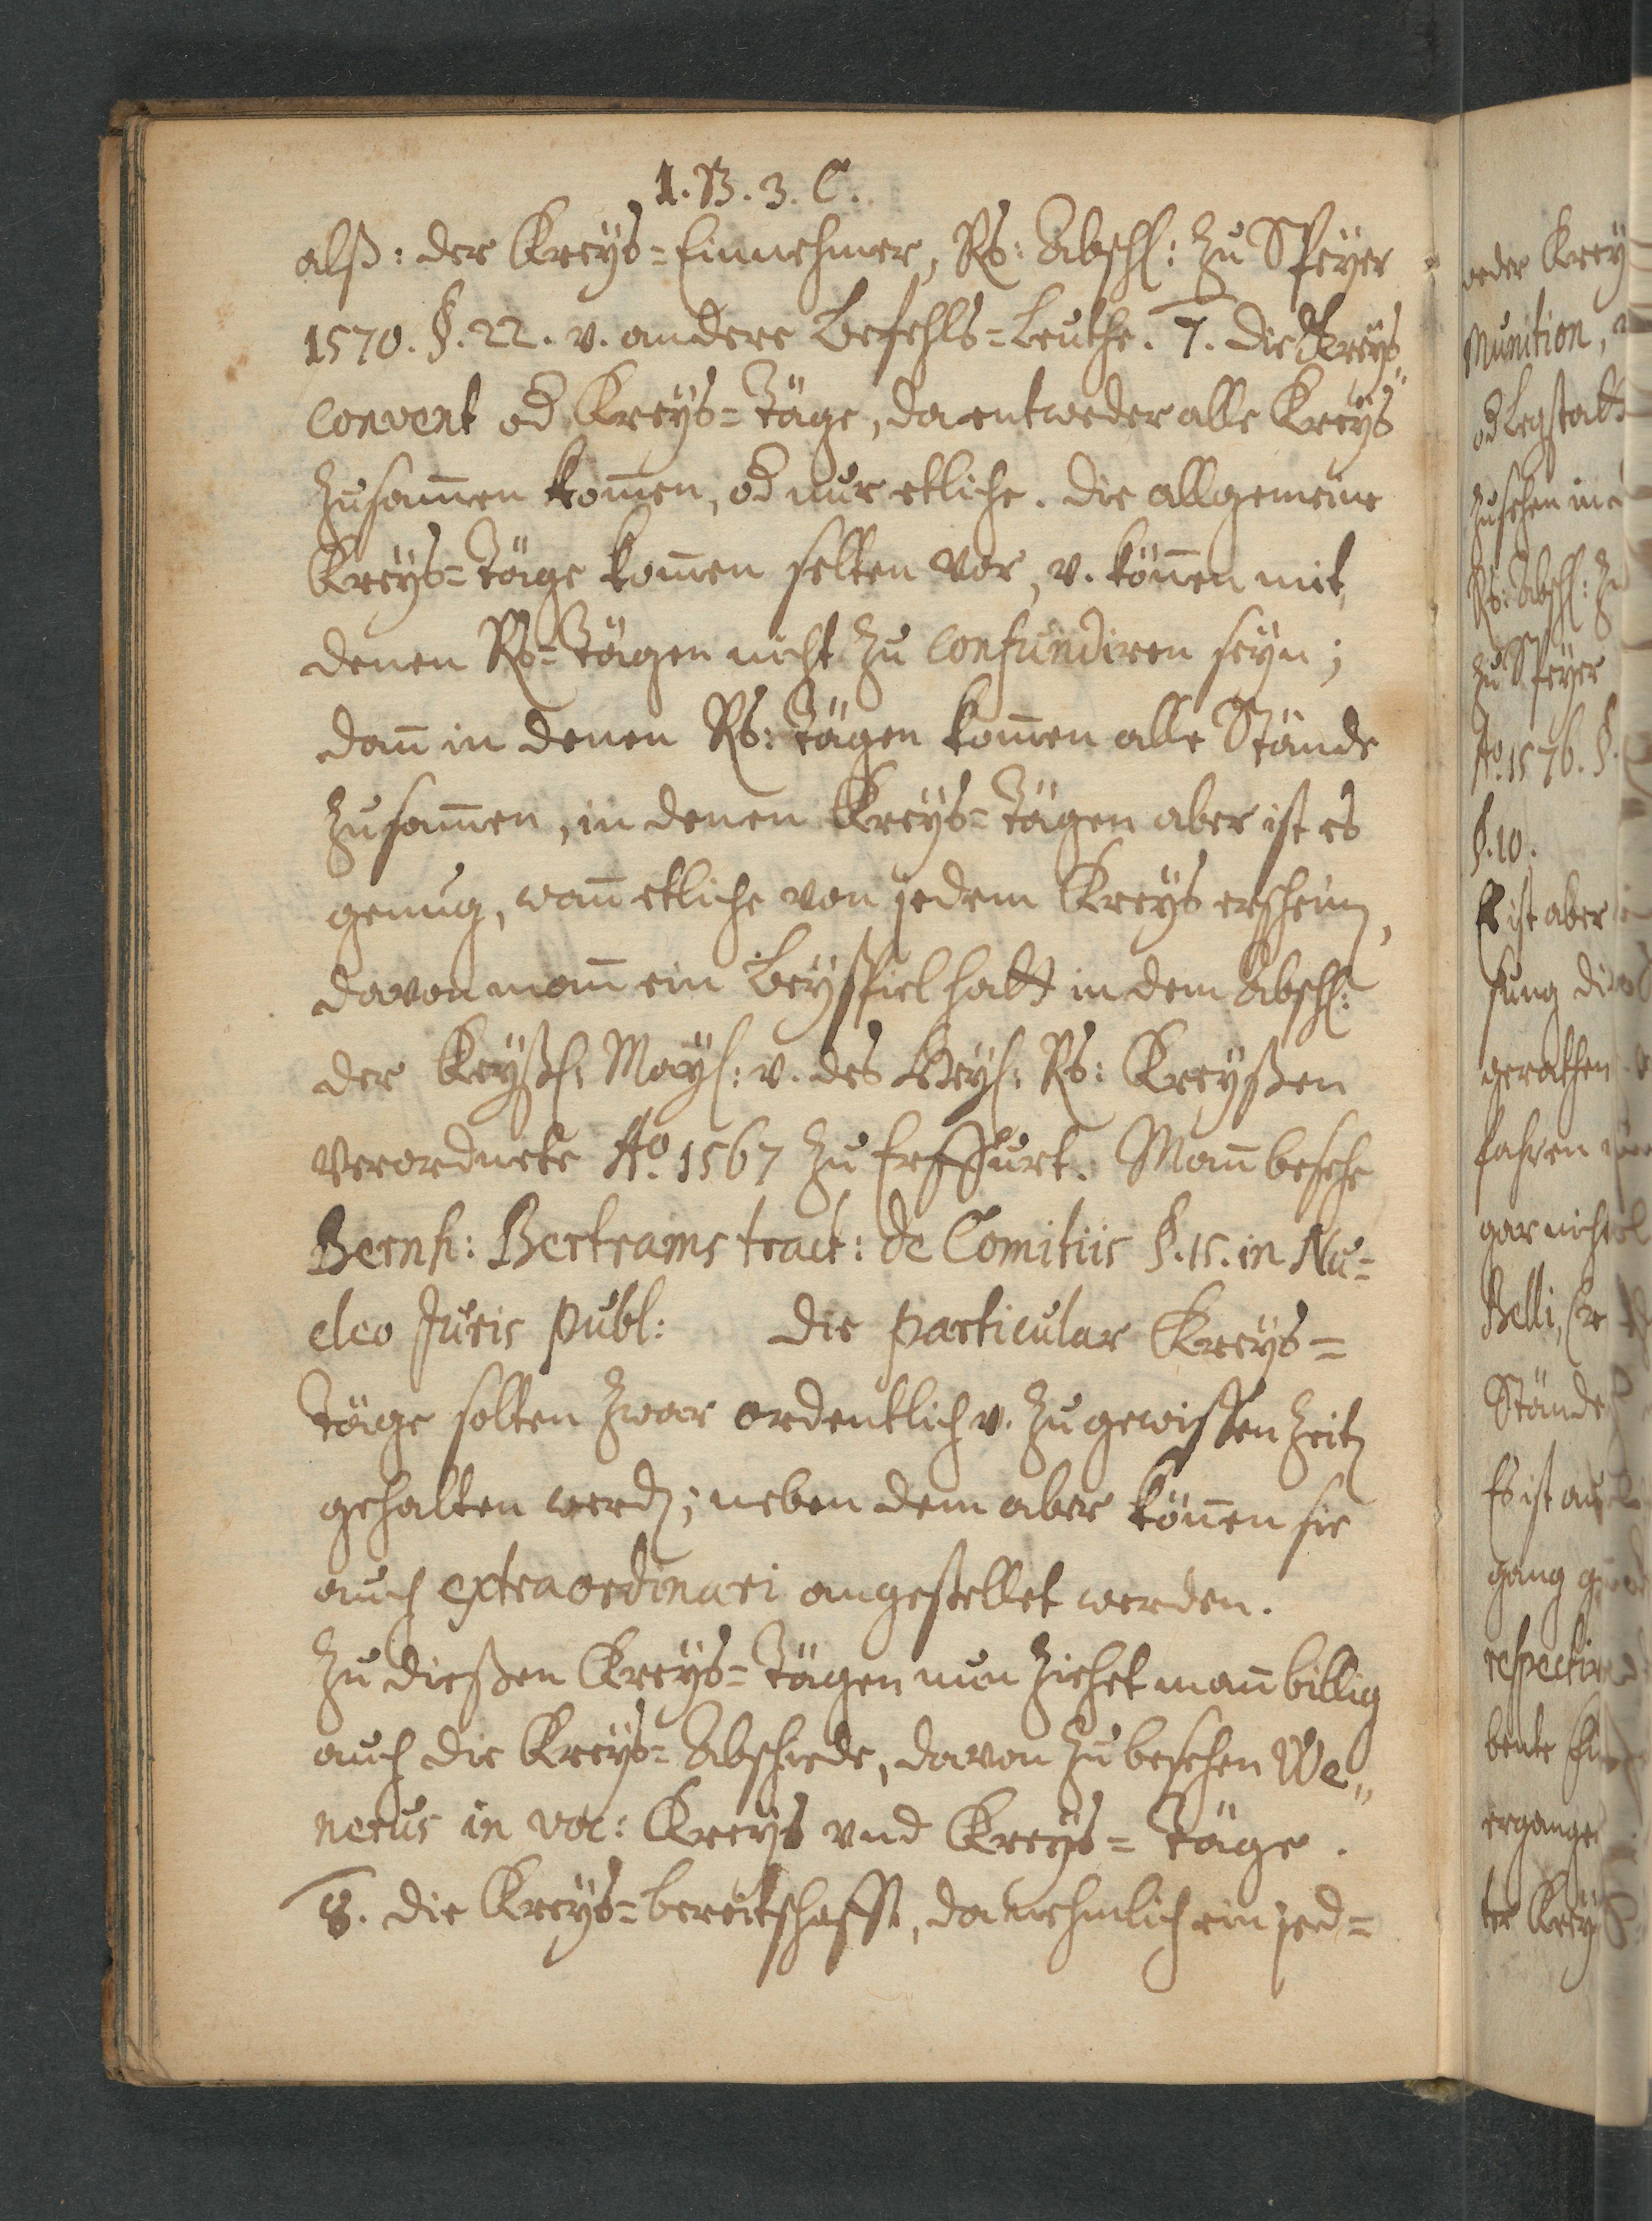 1. B. 3. C.
alß: der Kreÿs=Einnehmer, Rs: Abschl: zu Speÿer
1570. §. 22. v. andere Befehls=Leuthe. 7. die Kreÿs"
Convent od Kreÿs=Täge, da entweder alle Kreÿs
zusam̄en kom̄en, od nur etliche. die allgemeine
Kreÿs=Täge kom̄en selten vor, v. kön̄en mit
denen Rs=Tägen nicht zu confundiren seÿn;
dan̄ in denen Rs: Tägen kom̄en alle Stände
zusam̄en, in denen Kreÿs=Tägen aber ist es
genug, wan̄ etliche von jedem Kreÿs erschein,
davon man̄ ein Beÿspiel hatt in dem Abschl:
der Keÿßl: Maÿl: v. des Heyl: Rs: Kreÿßen
verordnete Aº. 1567 zu Erffurt. Man̄ besehe
Bernh: Bertrams tract: de Comitiis §. 15. in Nu=
cleo Juris publ: die particular Kreÿs=
Täge solten zwar ordentlich v. zu gewissen Zeit
gehalten werd; neben dem aber kön̄en sie
auch extraordinari angestellet werden.
Zu dießen Kreÿs=Tägen nun ziehet man̄ billig
auch die Kreÿs=Abschiede, davon zu besehen We"
nerus in voc: Kreÿs vnd Kreÿs=Täge.
8. die Kreÿs=bereitschafft, da nehmlich ein jed=
oder Kreÿ
Munition,
od Legstatt
zusehen in
Rs: Abschl: zu
zu Speÿer
Aº. 1576. §.
§. 10.
Es ist aber
sung di
gerathen
fahren
gar nicht
Belli,
Stände
Es ist au
gang g
respective
bente
ergange
ter Kreÿ